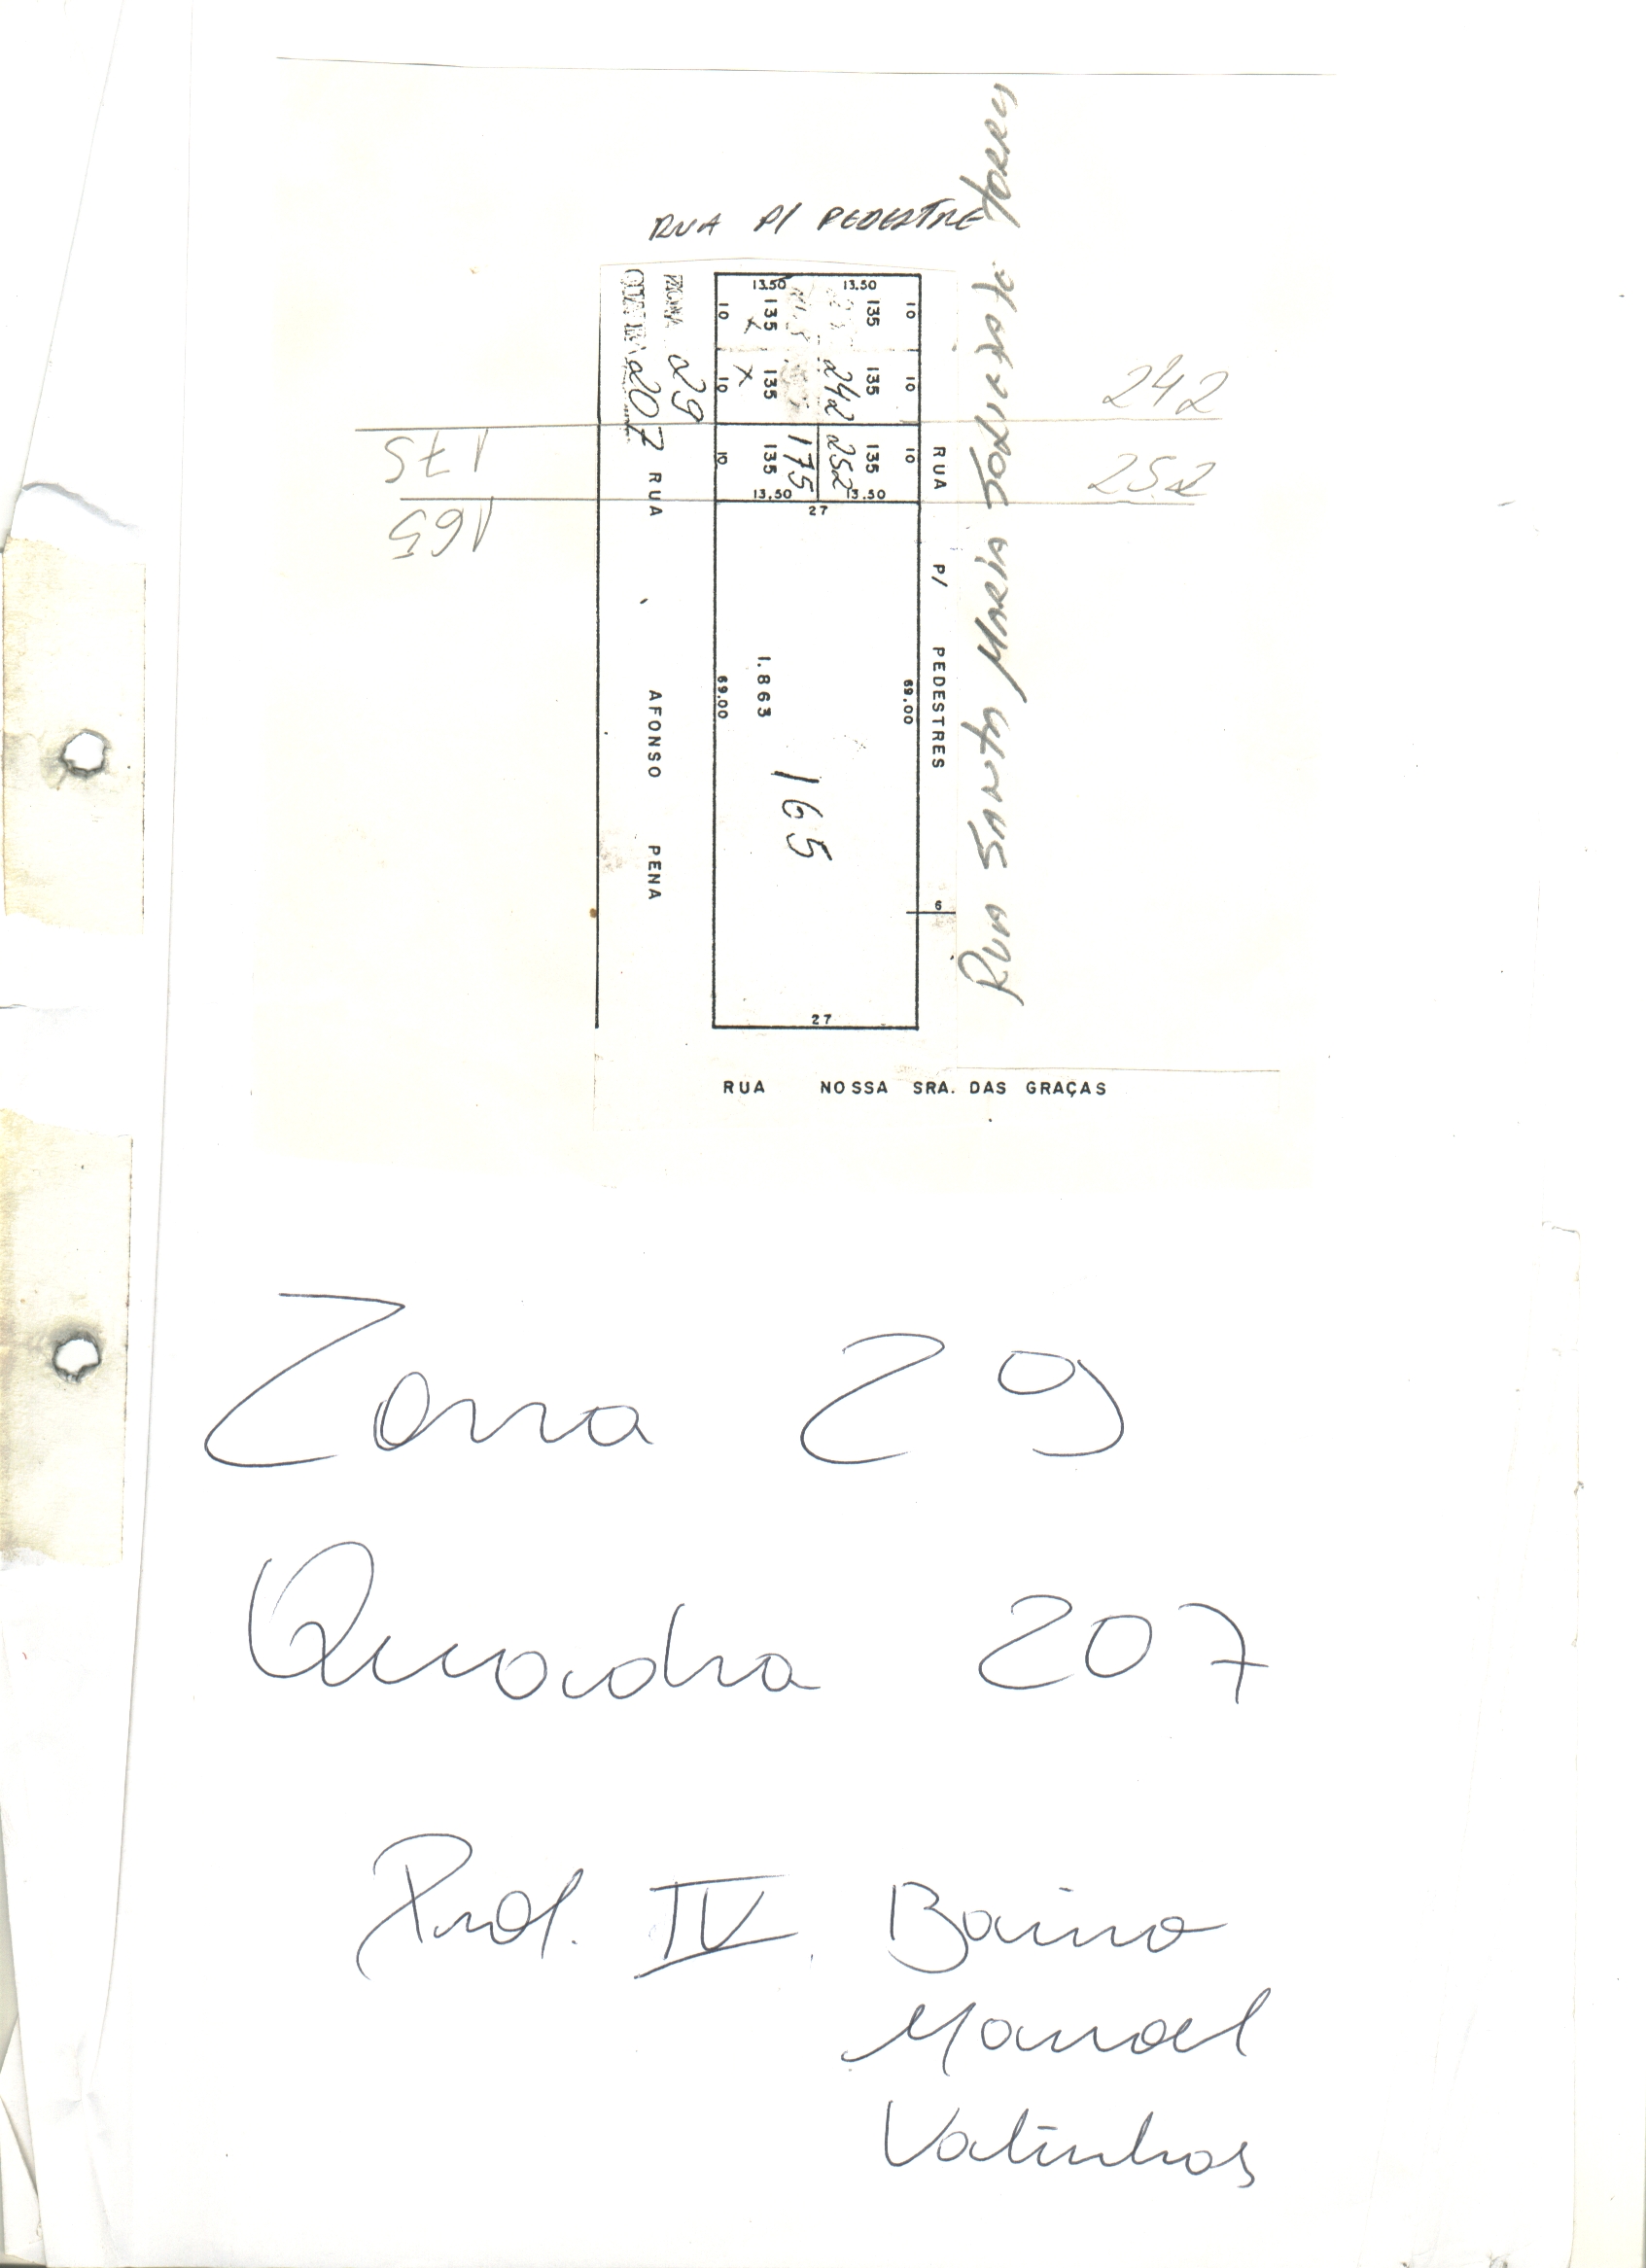 RUA P/ PEDESTRE
13.50 13.50
10 135 135 10
X
10 135 242 135 10
X
29
207
242
175
10 135 175 252 135 10
252
13.50 13.50
165
27
RUA P/ PEDESTRES
Rua Santa Maria Torres
69.00 1.863 69.00
165
RUA AFONSO PENA
6
27
RUA NOSSA SRA. DAS GRAÇAS
Zona 29
Quadra 207
IV Bairro
Manoel
Valinhos